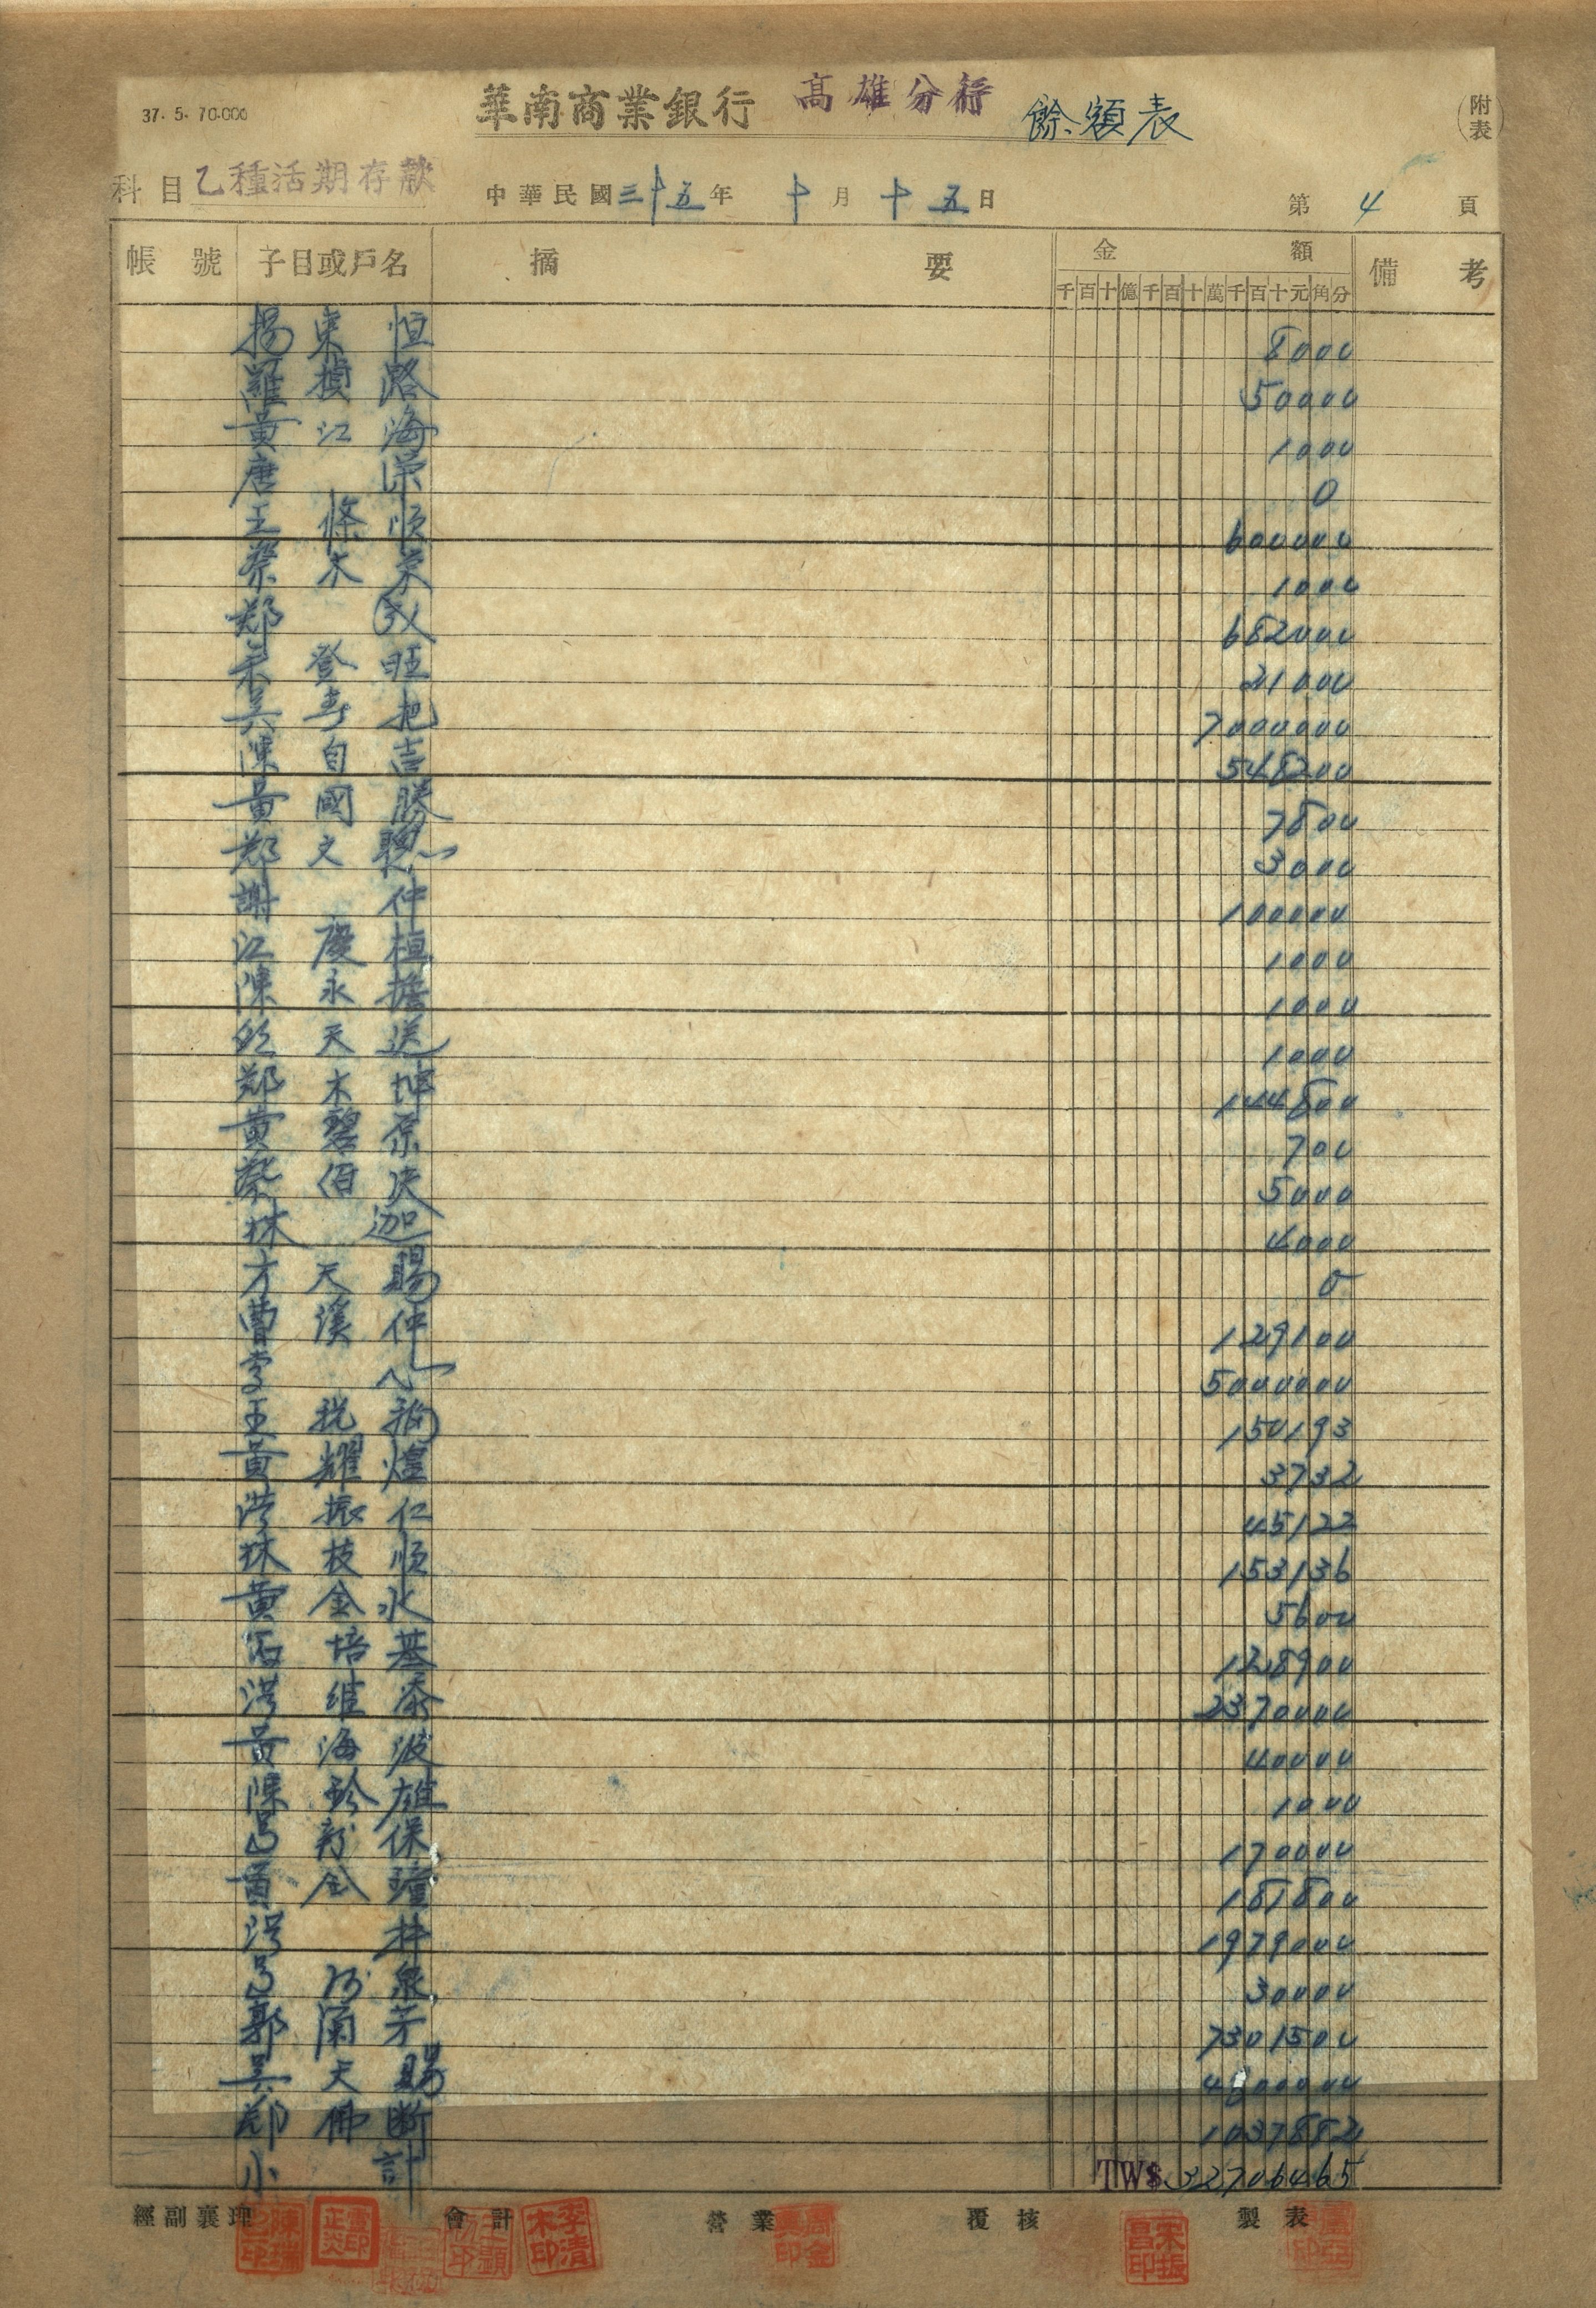 37. 5. 70.000
華南商業銀行 高雄分行 餘額表
(附表)
科目 乙種活期存款 中華民國三十五年 十月 十五日 第 4 頁
帳號 子目或戶名 摘要 金額 備考
千百十億千百十萬千百十元角分
楊東恒 8000
羅損路 50000
黃江海 1000
唐榮 0
王條順 600000
蔡木荣 1000
鄭 682000
登旺 21000
吳寿把 7000000
陳自吉 548200
黃國勝 7800
鄭文聰 3000
謝仲 100000
江慶桓 1000
陳永擔 1000
天送 1000
鄭木坤 144800
黃碧原 700
蔡伯決 5000
林迦 4000
方天賜 0
曹溪仲 129100
李心 5000000
王 150193
黃耀煌 3732
洪振仁 45122
林枝順 153136
黃金水 5600
石培基 128900
洪維添 2370000
黃海波 40000
陳珍雄 1000
呂新保 170000
黃金 181800
洪 1979000
呂河泉 30000
郭 7301500
吳天賜 4800000
鄭佛斷 1037882
小計 TW$ 32706465
經副襄理 會計 營業 覆核 製表
李清木印